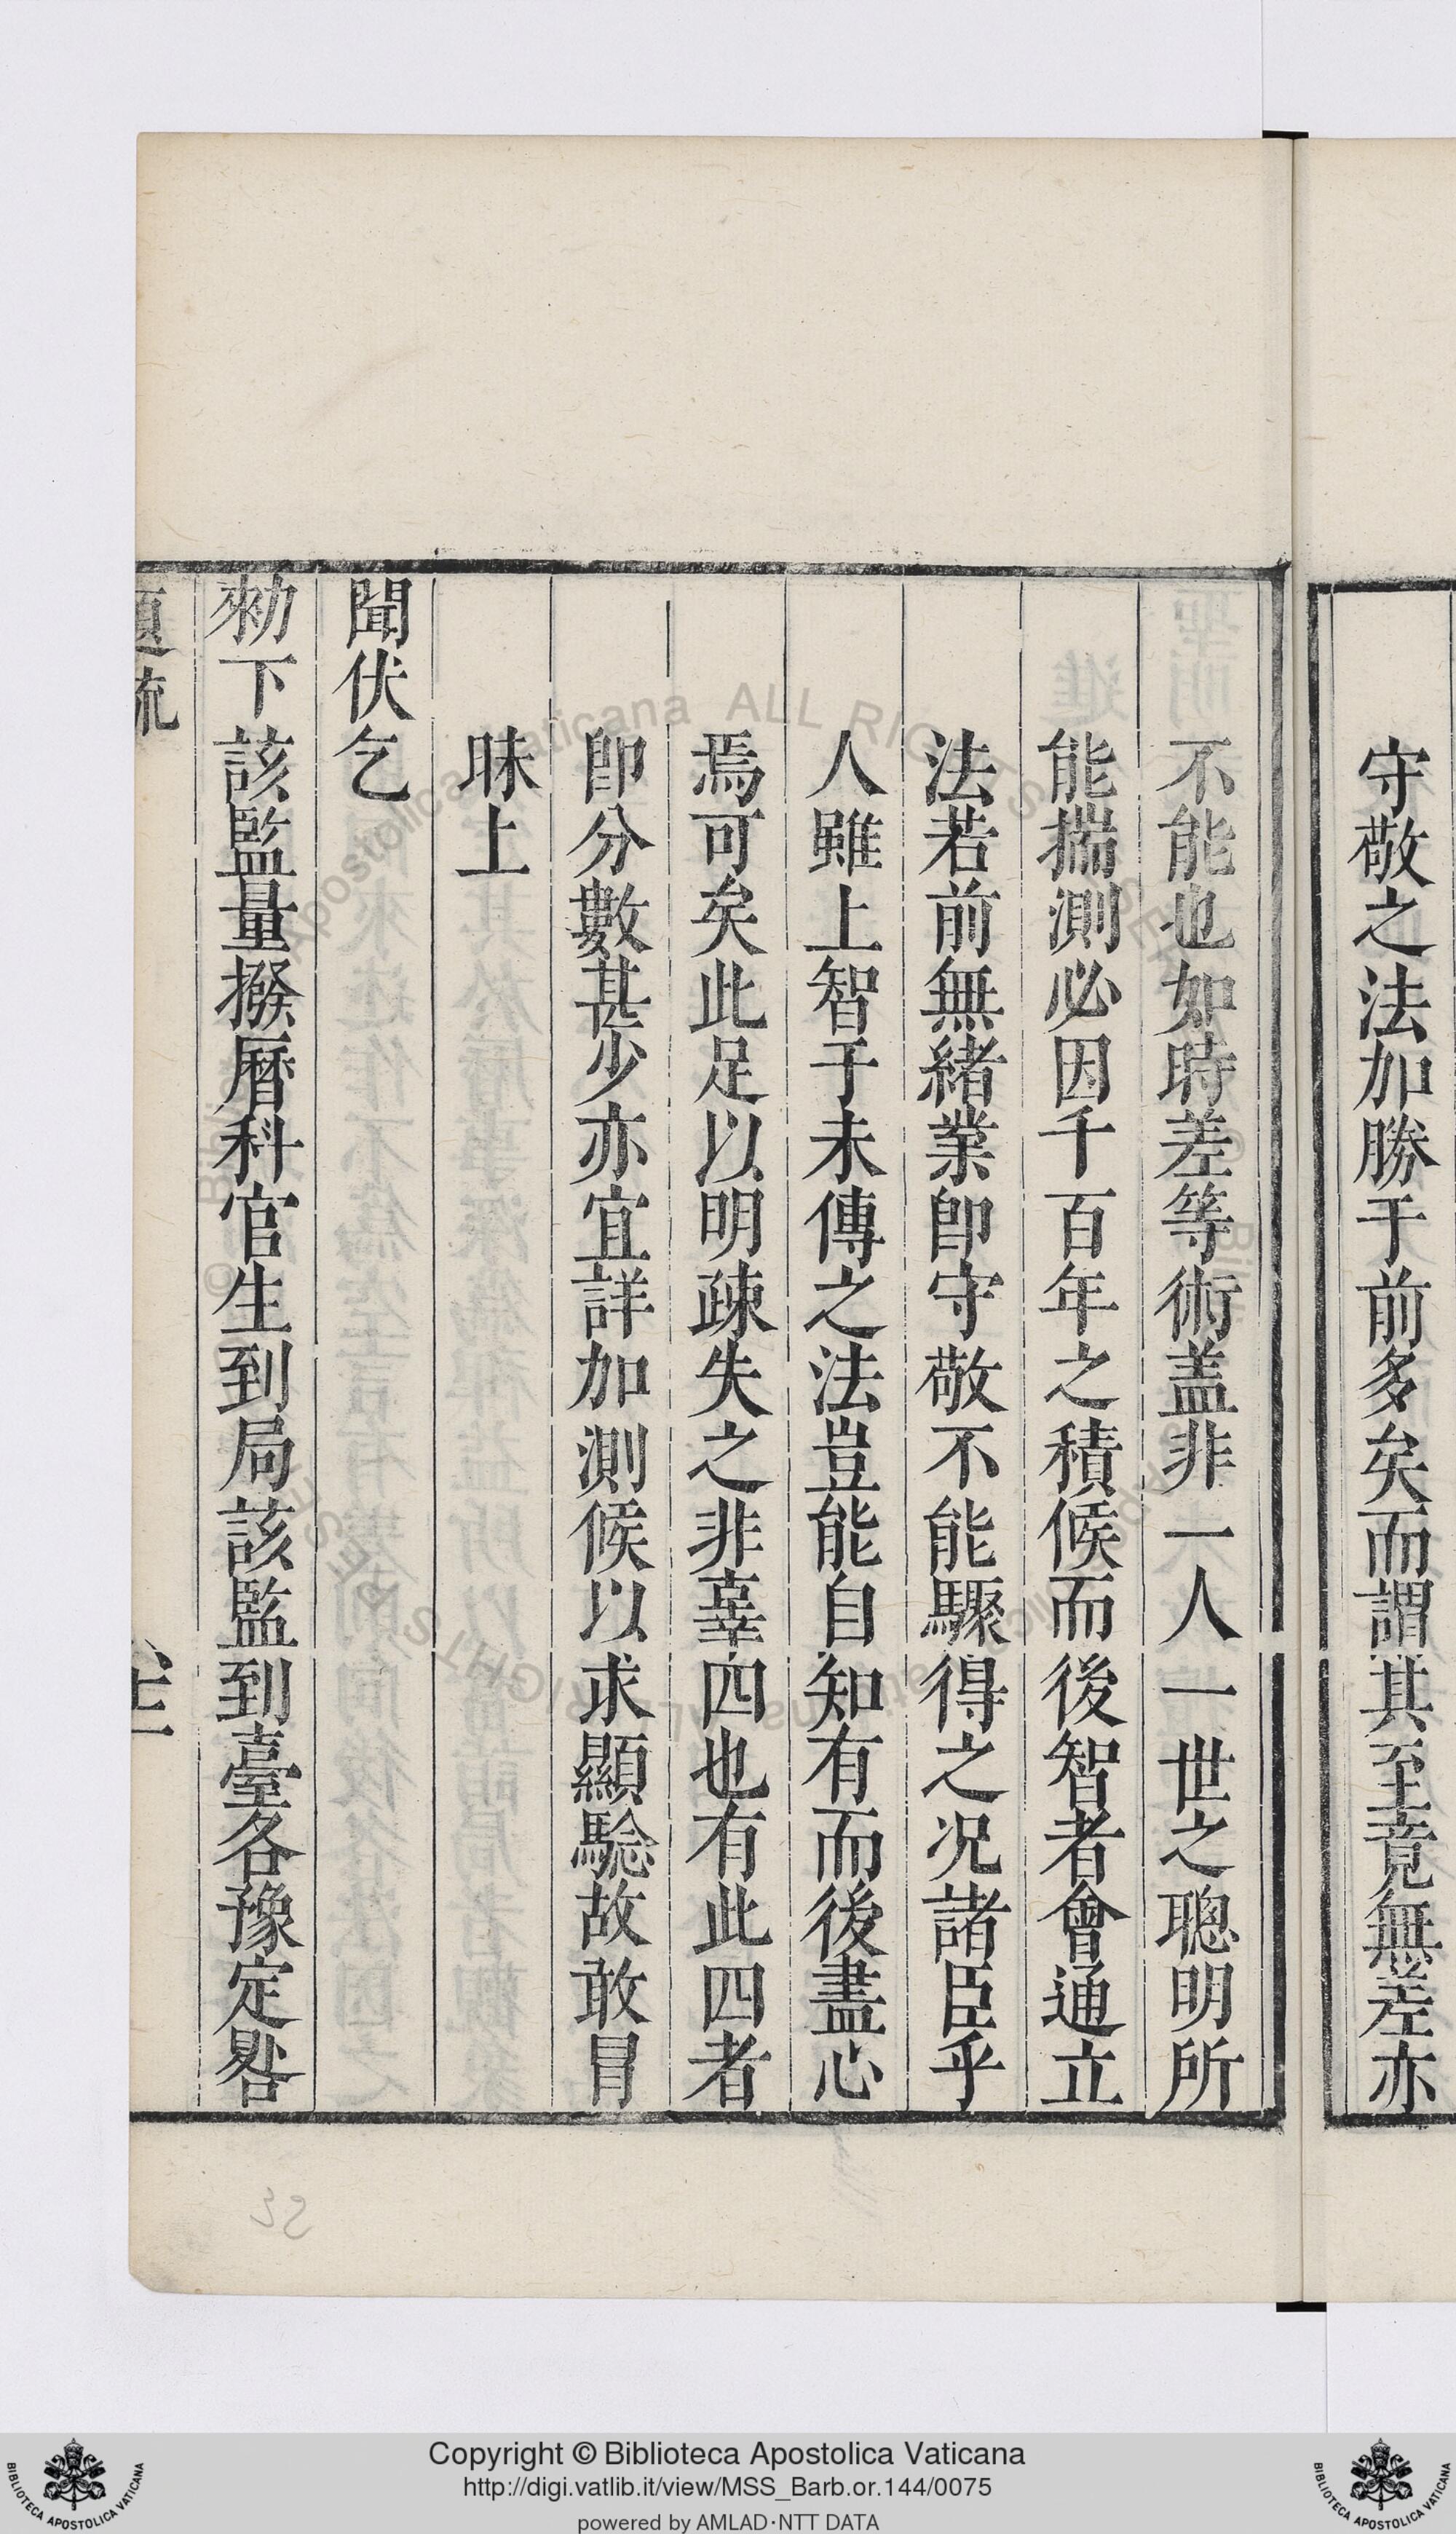 守敬之法加勝于前多矣而謂其至竟無差亦
不能也如時差等術盖非一人一世之聰明所
能揣測必因千百年之積候而後智者會通立
法若前無緒業卽守敬不能驟得之况諸臣乎
人雖上智于未傳之法豈能自知有而後盡心
焉可矣此足以明疎失之非辜四也有此四者
卽分數甚少亦宜詳加測候以求顯驗故敢冒
昧上
聞伏乞
勑下該監量撥曆科官生到局該監到臺各豫定晷
Copyright © Biblioteca Apostolica Vaticana
http://digi.vatlib.it/view/MSS_Barb.or.144/0075
powered by AMLAD·NTT DATA
BIBLIOTECA APOSTOLICA VATICANA
BIBLIOTECA APOSTOLICA VATICANA